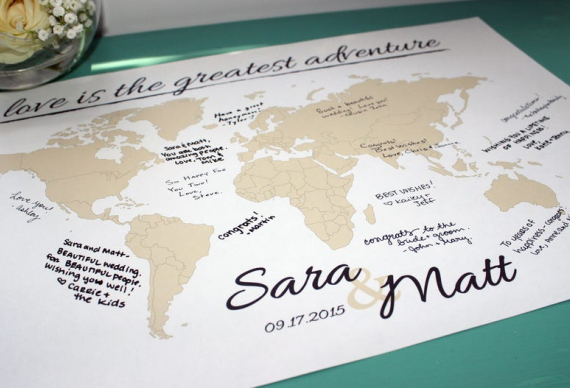 love is the greatest adventure
Have a great
honeymoon!
Tyler
Sara & Matt,
You are both
amazing people.
Love, Tom &
Mike
wedding! Love you!
Congrats!
Best Wishes!
Love,
Congratulations!
WISHING YOU A LIFETIME
OF HAPPINESS
So Happy For
You Two!
Love,
Steve
Love you!
Ashley
BEST WISHES!
♡ Kailey +
Jeff
Congrats!
- Martin
congrats to the
bride + groom
- John + Mary
TO YEARS OF
happiness
Love,
Sara and Matt-
BEAUTIFUL wedding
for BEAUTIFUL people.
Wishing you well!
♡ Carrie +
the kids
Sara & Matt
09.17.2015